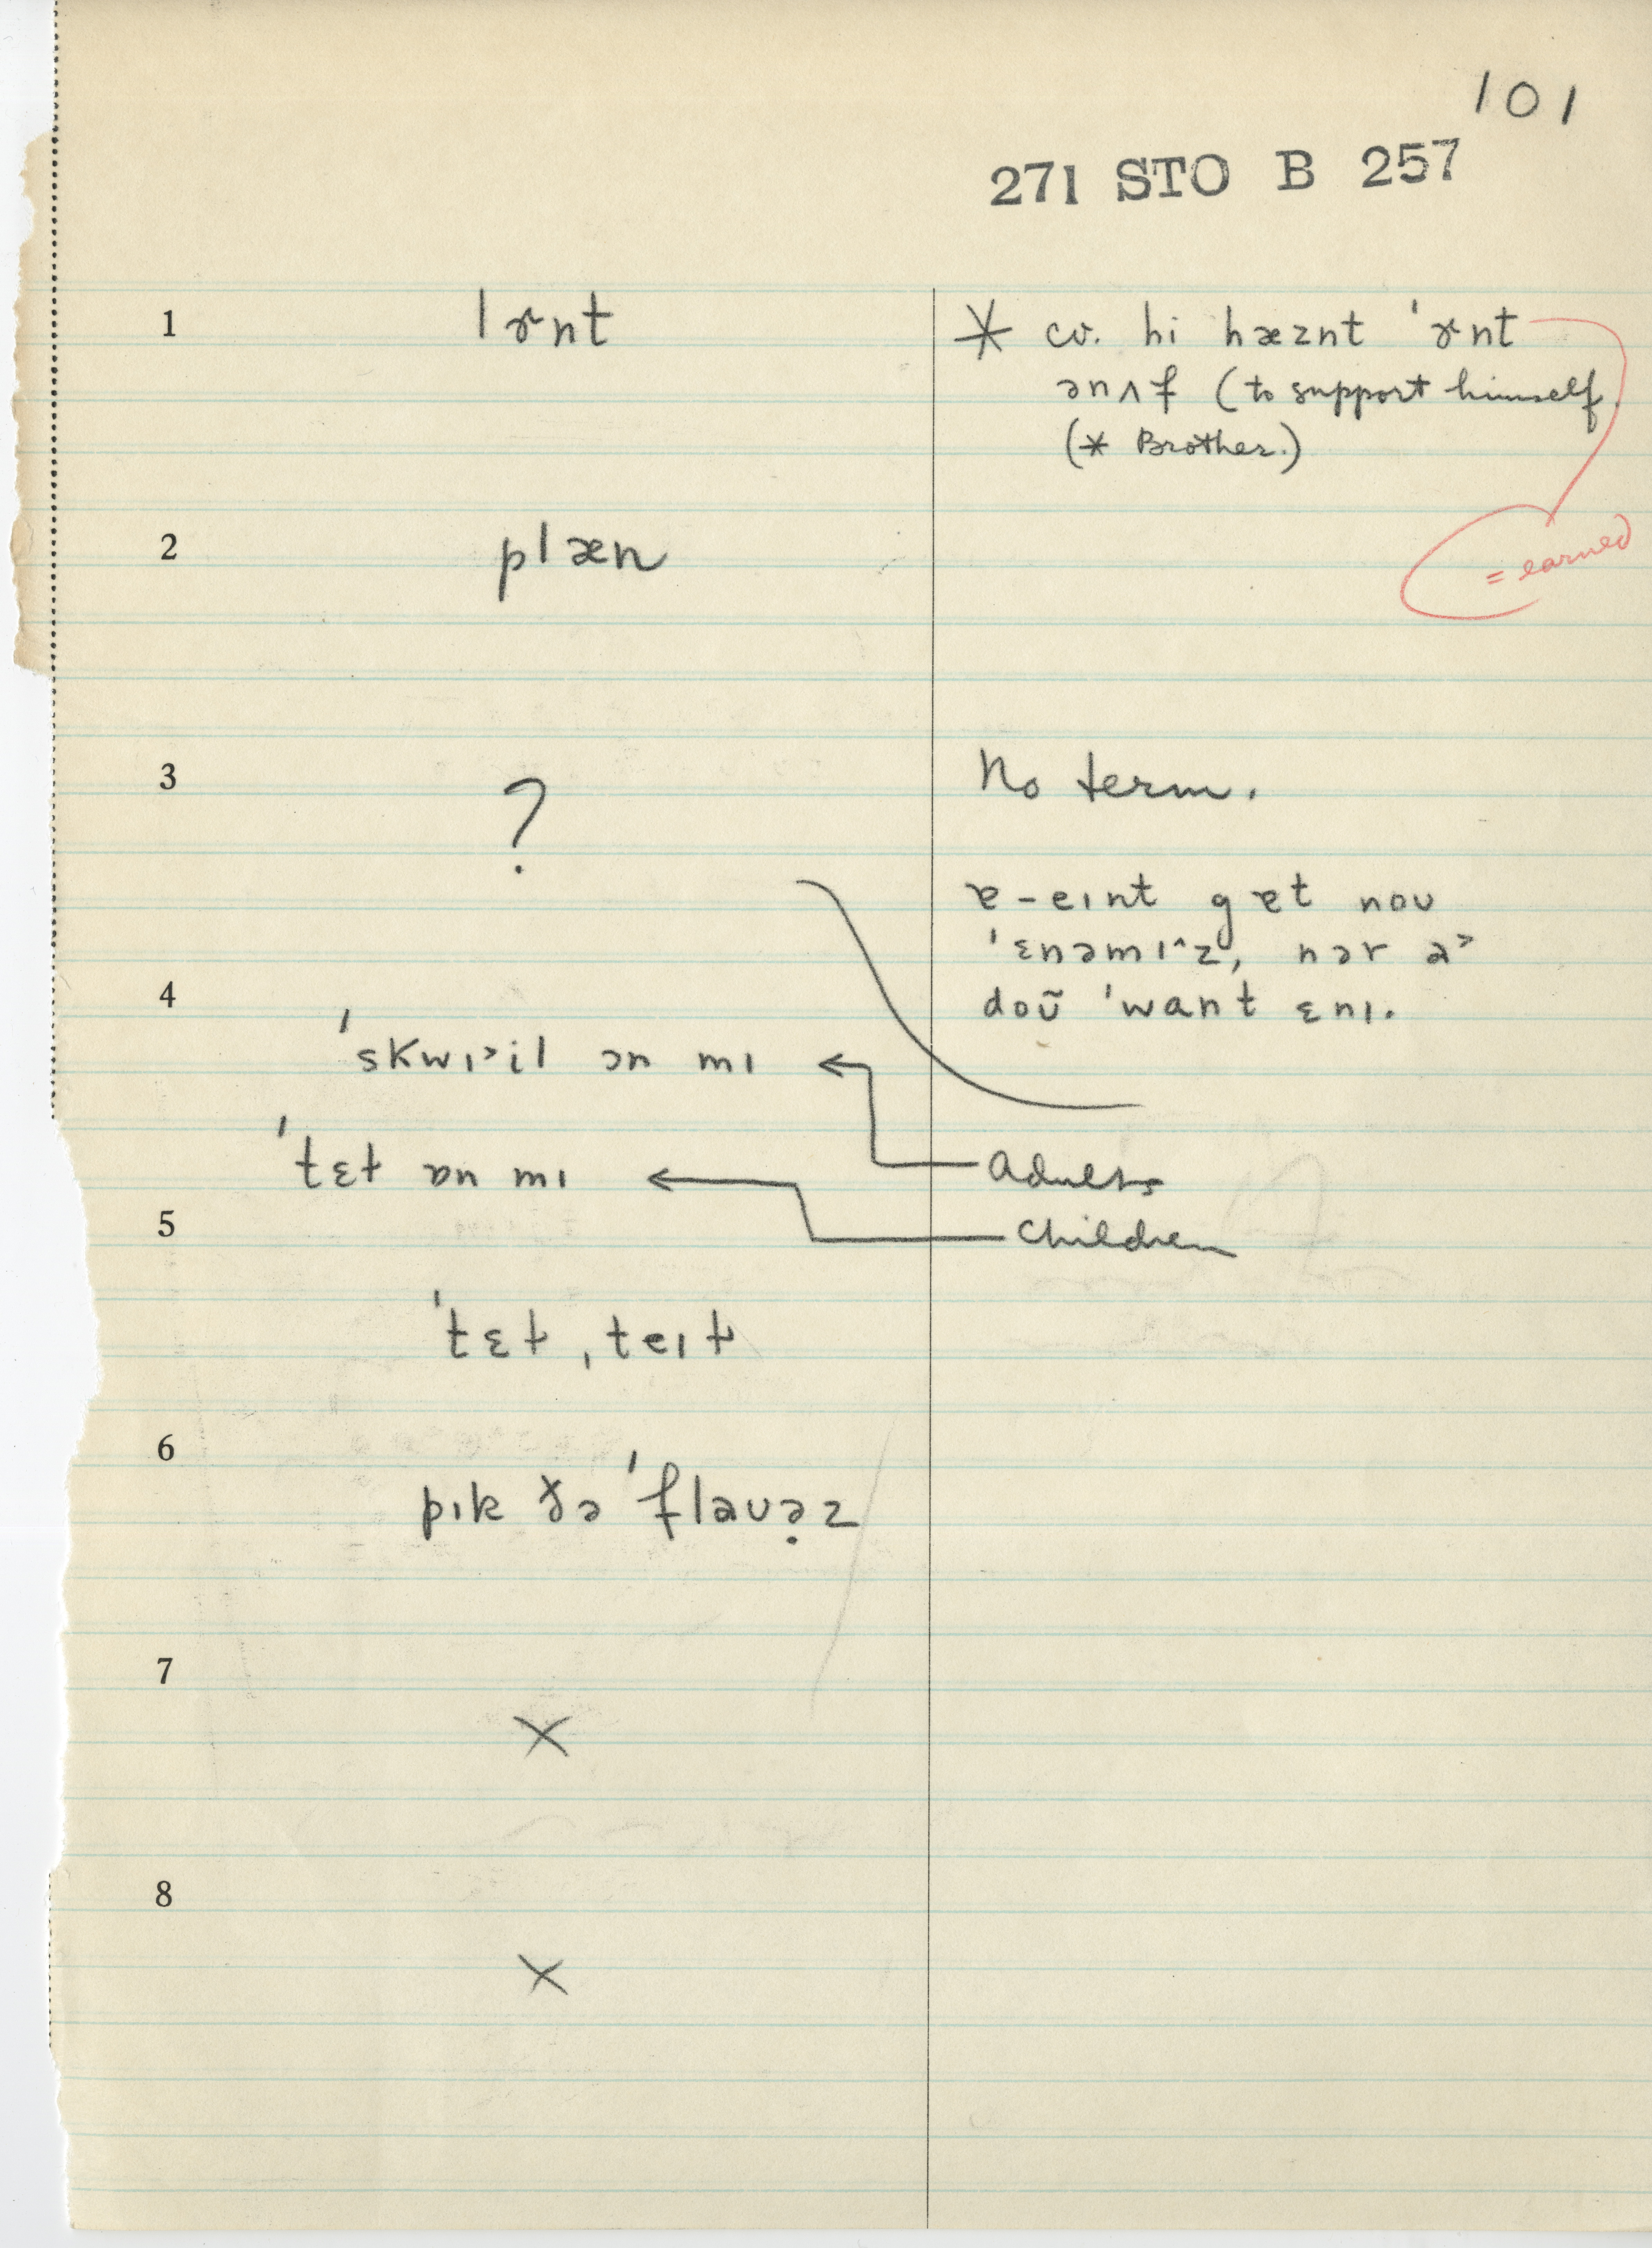 101
271 STO B 257
1 lɚnt
* cv. hi hæznt 'ɚnt
ənʌf (to support himself.
(* Brother.)
= earned
2 plæn
3 ?
No term.
ɐ-eɪnt gɐt noʊ
'ɛnəmɪ^z, nər a>
doʊ̃ 'want ɛnɪ.
4
'skwɪ>il ɔn mɪ
'tɛt ɒn mɪ
Adults
Children
5
'tɛt, teɪt
6
pɪk ðə 'flaʊə̣z
7
X
8
X